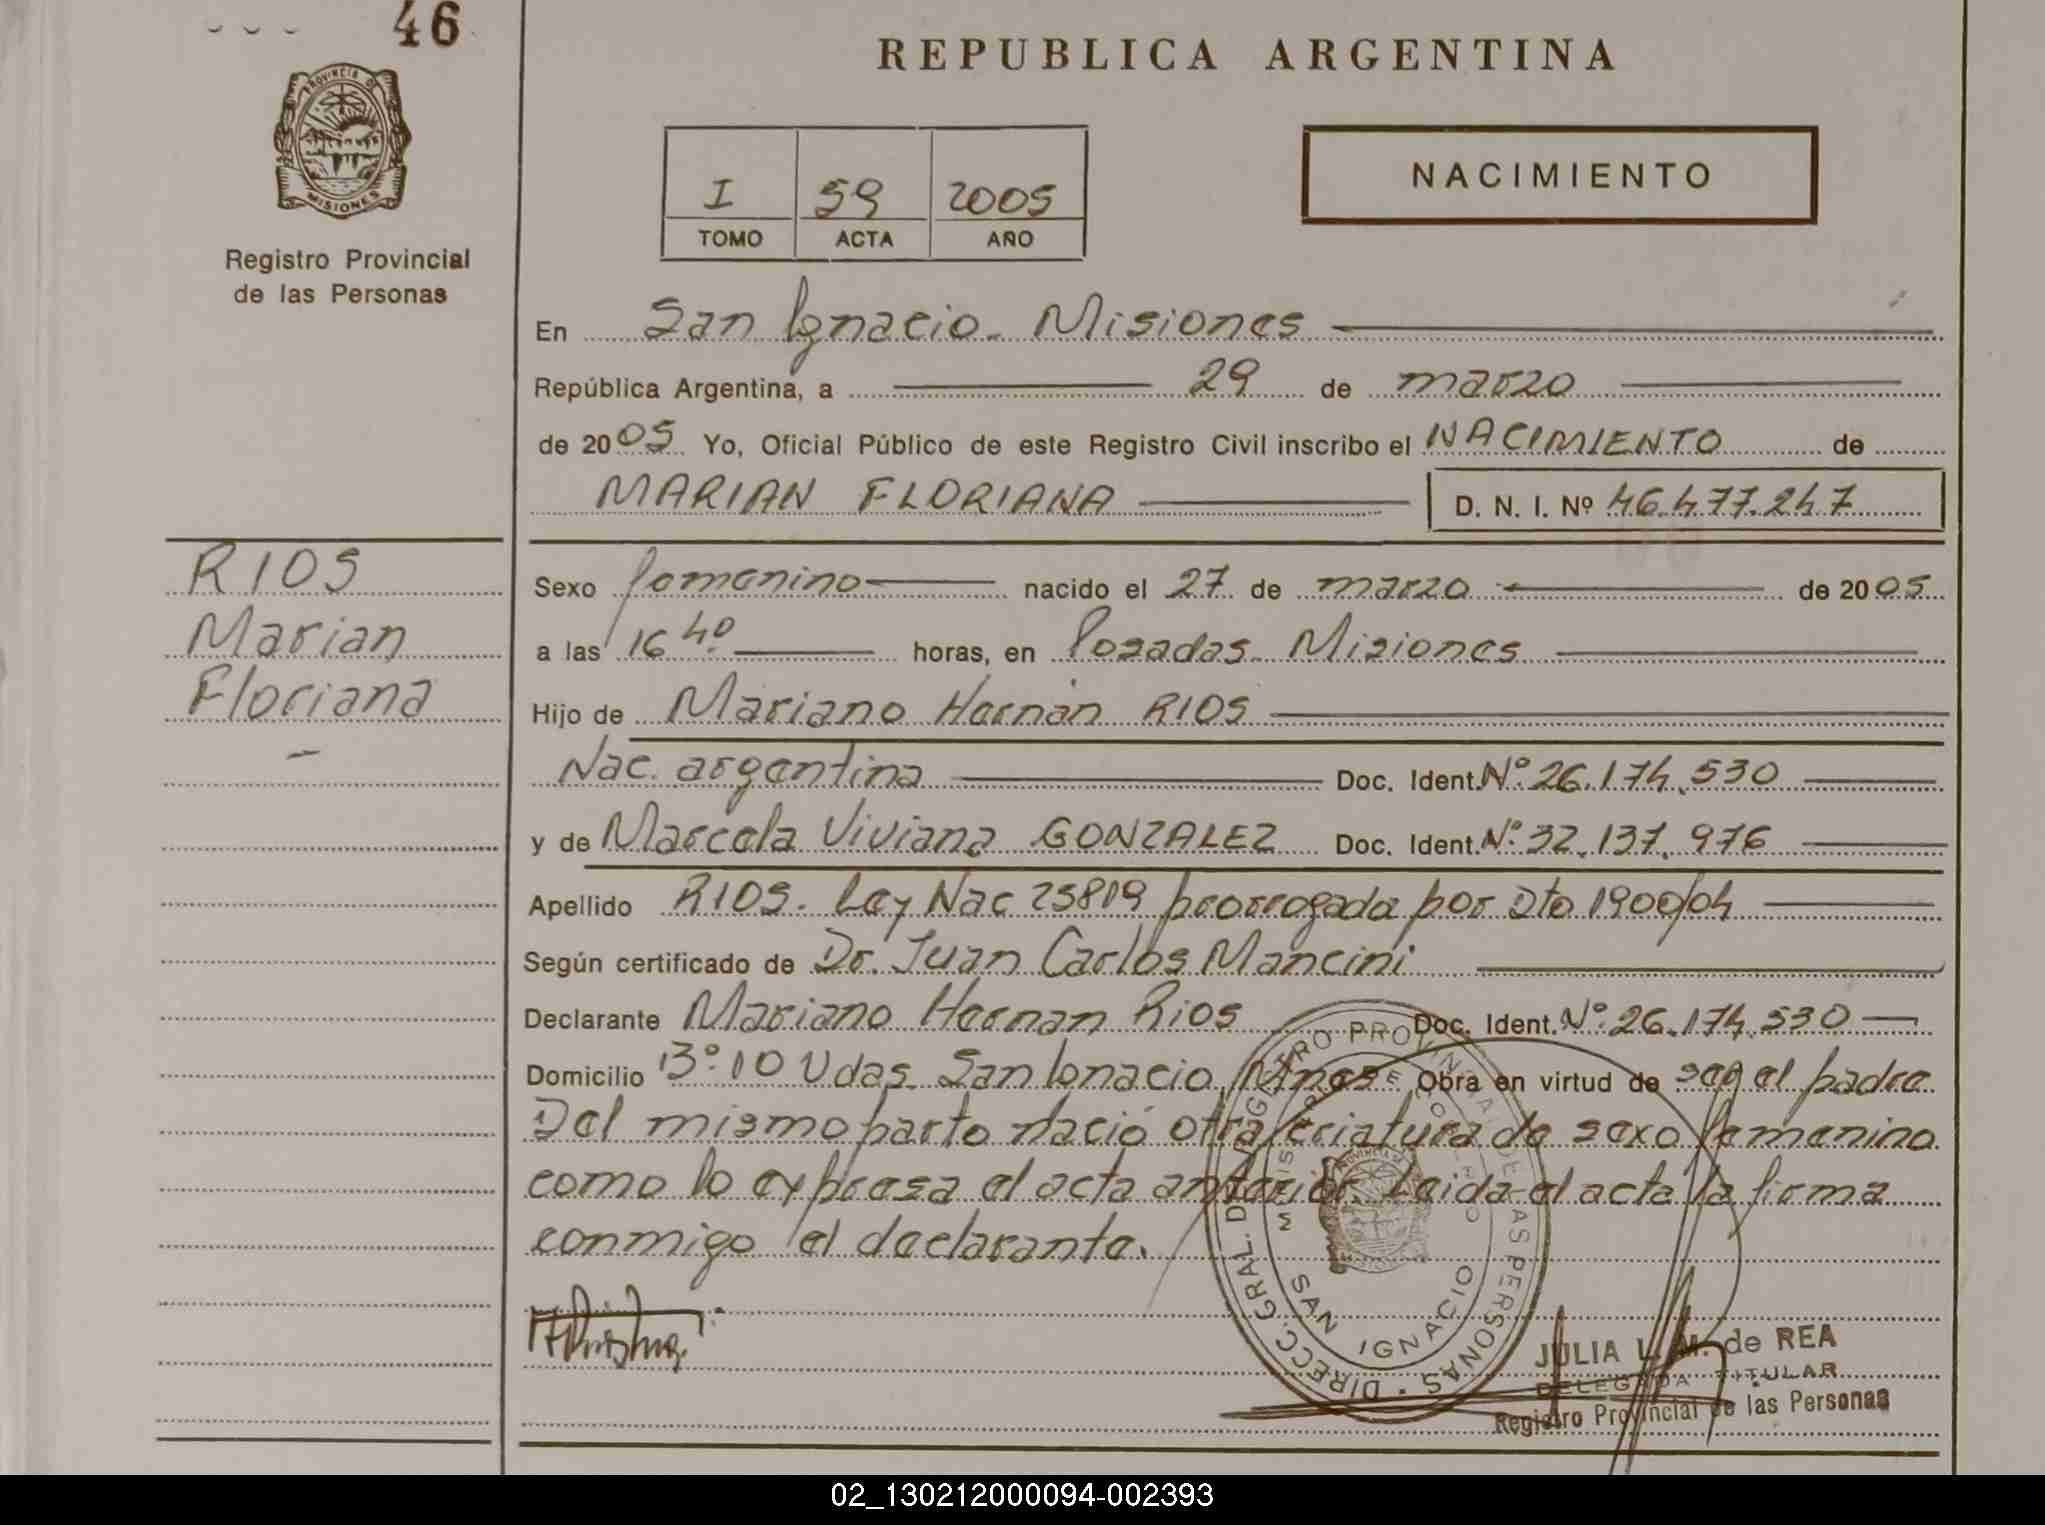 46
REPUBLICA ARGENTINA
PROVINCIA DE
MISIONES
Registro Provincial
de las Personas
NACIMIENTO
I 59 2005
TOMO ACTA AÑO
En San Ignacio. Misiones
República Argentina, a 29 de marzo
de 2005 Yo, Oficial Público de este Registro Civil inscribo el NACIMIENTO de
MARIAN FLORIANA D. N. I. Nº 46.477.247
RIOS
Marian
Floriana
Sexo femenino nacido el 27 de marzo de 2005
a las 16 40 horas, en Posadas. Misiones
Hijo de Mariano Hernán RIOS
Nac. argentina Doc. Ident. Nº 26.174.530
y de Marcela Viviana GONZALEZ Doc. Ident. Nº 32.137.976
Apellido RIOS. Ley Nac 25819 prorrogada por Dto 1900/04
Según certificado de Dr. Juan Carlos Mancini
Declarante Mariano Hernan Rios Doc. Ident. Nº 26.174.530
Domicilio Bº 10 Vdas San Ignacio Mnes Obra en virtud de ser el padre
Del mismo parto nació otra criatura de sexo femenino
como lo expresa el acta anterior. Leida el acta la firma
conmigo el declarante.
DIRECC. GRAL. DE REGISTRO PROVINCIAL DE LAS PERSONAS
SAN IGNACIO
JULIA L. M. de REA
DELEGADA TITULAR
Registro Provincial de las Personas
02_130212000094-002393